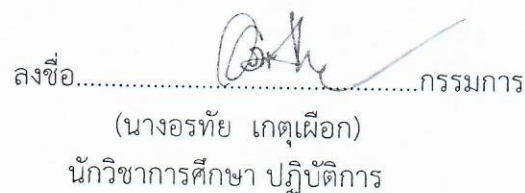 ลงชื่อ....................................................กรรมการ
(นางอรทัย เกตุเผือก)
นักวิชาการศึกษา ปฏิบัติการ